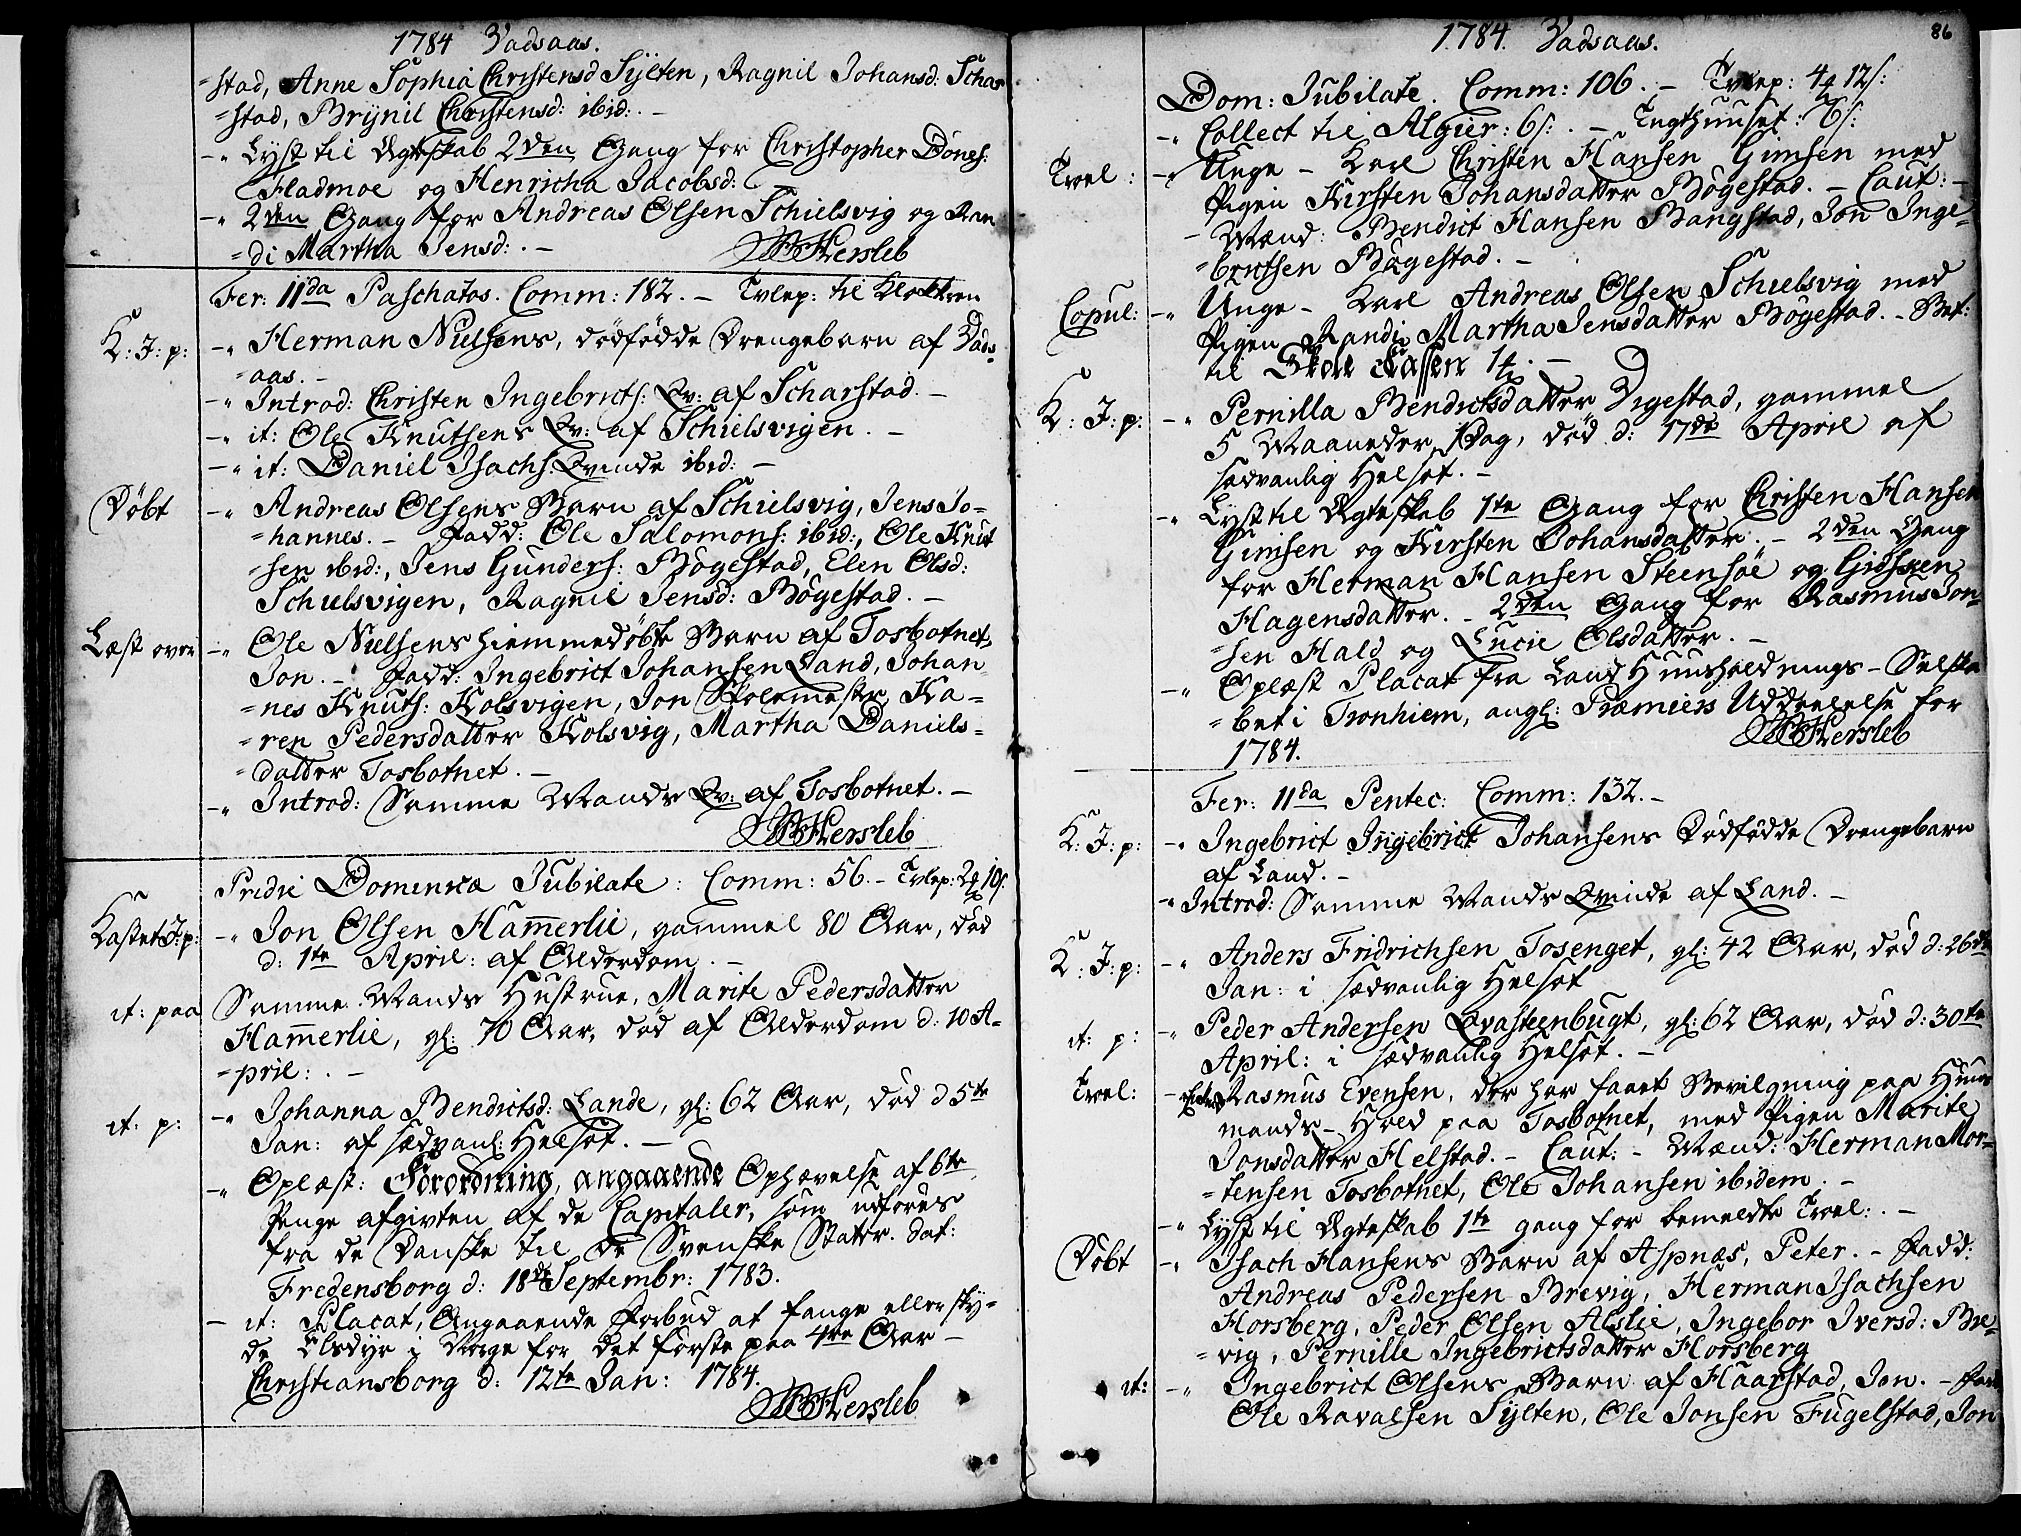 1784 Vadsaas.
=stad, Anne Sophia Christensd Sÿlten, Ragnil Johansd: Schar
=stad, Brÿnil Christensd: ibid: . –
–„ Lyst til Ægteskab 2den Gang for Christopher Dönes:
Fladmoe og Henricha Jacobsd:
–„ 2den Gang for Andreas Olsen Schielsvig og Ran
=di Martha Jensd: . – Hersleb
Fer: 11da Paschatos. Comm: 182. – Tvlep: til Klokkeren
K: J: p: –„ Herman Nielsens, dödfödde Drengebarn af Vads
=aas. –
–„ Introd: Christen Ingebricts: Qv: af Scharstad. –
–„ it: Ole Knutsens Qv: af Schielsvigen. –
–„ it: Daniel Isachs: Qvinde ibid: –
Döbt –„ Andreas Olsens Barn af Schielsvig, Jens Jo=
=hannes. – Fadd: Ole Salomons: ibid:, Ole Knut
sen ibid:, Jens Gunders: Bögestad, Elen Olsd:
Schielsvigen, Ragnil Jensd: Bögestad. –
Læst over –„ Ole Nielsens hiemmedöbte Barn af Tosbotnet,
Jon. – Fadd: Ingebrict Johansen Land, Johan
=nes Knuts: Kolsvigen, Jon Skolemester, Ka=
=ren Pedersdatter Kolsvig, Martha Daniels=
=datter Tosbotnet. –
–„ Introd: Samme Mands Qv: af Tosbotnet. –
Hersleb
Pridie Dominica Jubilate: Comm: 56. – Tvlep: 2 10s:
Kastet J: p: –„ Jon Olsen Ham̄erlie, gammel 80 Aar, död
d: 1te April: af Alderdom. –
it: paa Samme Mands Hustrue, Marite Pedersdatter
Ham̄erlie, gl: 70 Aar, död af Alderdom d: 10 A=
=pril: . –
it: p: –„ Johanna Bendictsd: Lande, gl: 62 Aar, död d 5te
Jan: af sædvanl: Helsot. –
–„ Oplæst: Forordning, angaaende Ophævelse af 6te
Penge afgivten af de Capitaler, som udföres
fra de Danske til de Svenske Stater. dat:
Fredensborg d: 18de Septembr: 1783.
– it: Placat, Angaaende Forbud at fange eller sky=
de Elsdyr i Norge for det förste paa 4re Aar –
Christiansborg d: 12te Jan: 1784.
Hersleb
1784. Vadsaas. 86
Dom: Jubilate. Comm: 106. – Tvlep: 4 12s:
–„ Collect til Algier: 6s: . – Tugthuuset: 6s:
Trol: –„ Unge – Karl Christen Hansen Gimsen med
Pigen Kirsten Johansdatter Bögestad. – Caut: –
– Mænd: Bendict Hansen Bangstad, Jon Inge=
=brictsen Bögestad. –
Copul: –„ Unge – Karl Andreas Olsen Schielsvig med
Pigen Randi Martha Jensdatter Bögestad. – Bet:
til Skole Cassen 1 . –
K: J: p: –„ Pernilla Bendictsdatter Vigestad, gammel
5 Maaneder 1 Dag, död d: 17de April af
sædvanlig Helsot. –
–„ Lyst til Ægteskab 1te Gang for Christen Hansen
Gimsen og Kirsten Johansdatter. – 2den Gang
for Herman Hansen Steensöe og Gidsken
Hagensdatter. – 2den Gang for Rasmus Jon=
=sen Hald og Lucie Olsdatter. –
–„ Oplæst Placat fra Land Huusholdnings – Selska
=bet i Tronhiem, angl: Præmiers Uddeelelse for
1784. Hersleb
Fer: 11da Pentec: Comm: 132. –
K: J: p: –„ Ingebrict Ingebrict Johansens Dödfödde Drengebarn
af Land. –
–„ Introd: Samme Mands Qvinde af Land. –
K: J: p: –„ Anders Fridrichsen Tosenget, gl: 42 Aar, död d: 26de
Jan: i sædvanlig Helsot
it: p: –„ Peder Andersen Qvasteenbugt, gl: 62 Aar, död d: 30te
April: i sædvanlig Helsot. –
Trol: – Rasmus Evensen, der har faaet Bevilgning paa Huus
mands – Hold paa Tosbotnet, med Pigen Marite
Jonsdatter Helstad. – Caut: – Mænd: Herman Mor=
=tensen Tosbotnet, Ole Johansen ibidem. –
–„ Lyst til Ægteskab 1te gang for bemeldte Trol: . –
Döbt –„ Isach Hansens Barn af Aspnæs, Peter. – Fadd:
Andreas Pedersen Brevig, Herman Isachsen
Horsberg, Peder Olsen Alslie, Ingebor Iversd: Bre=
=vig, Pernille Ingebrictsdatter Horsberg
it: –„ Ingebrict Olsens Barn af Haarstad, Jon. – Fadd
Ole Ravalsen Sÿlten, Ole Jonsen Fugelstad, Jon